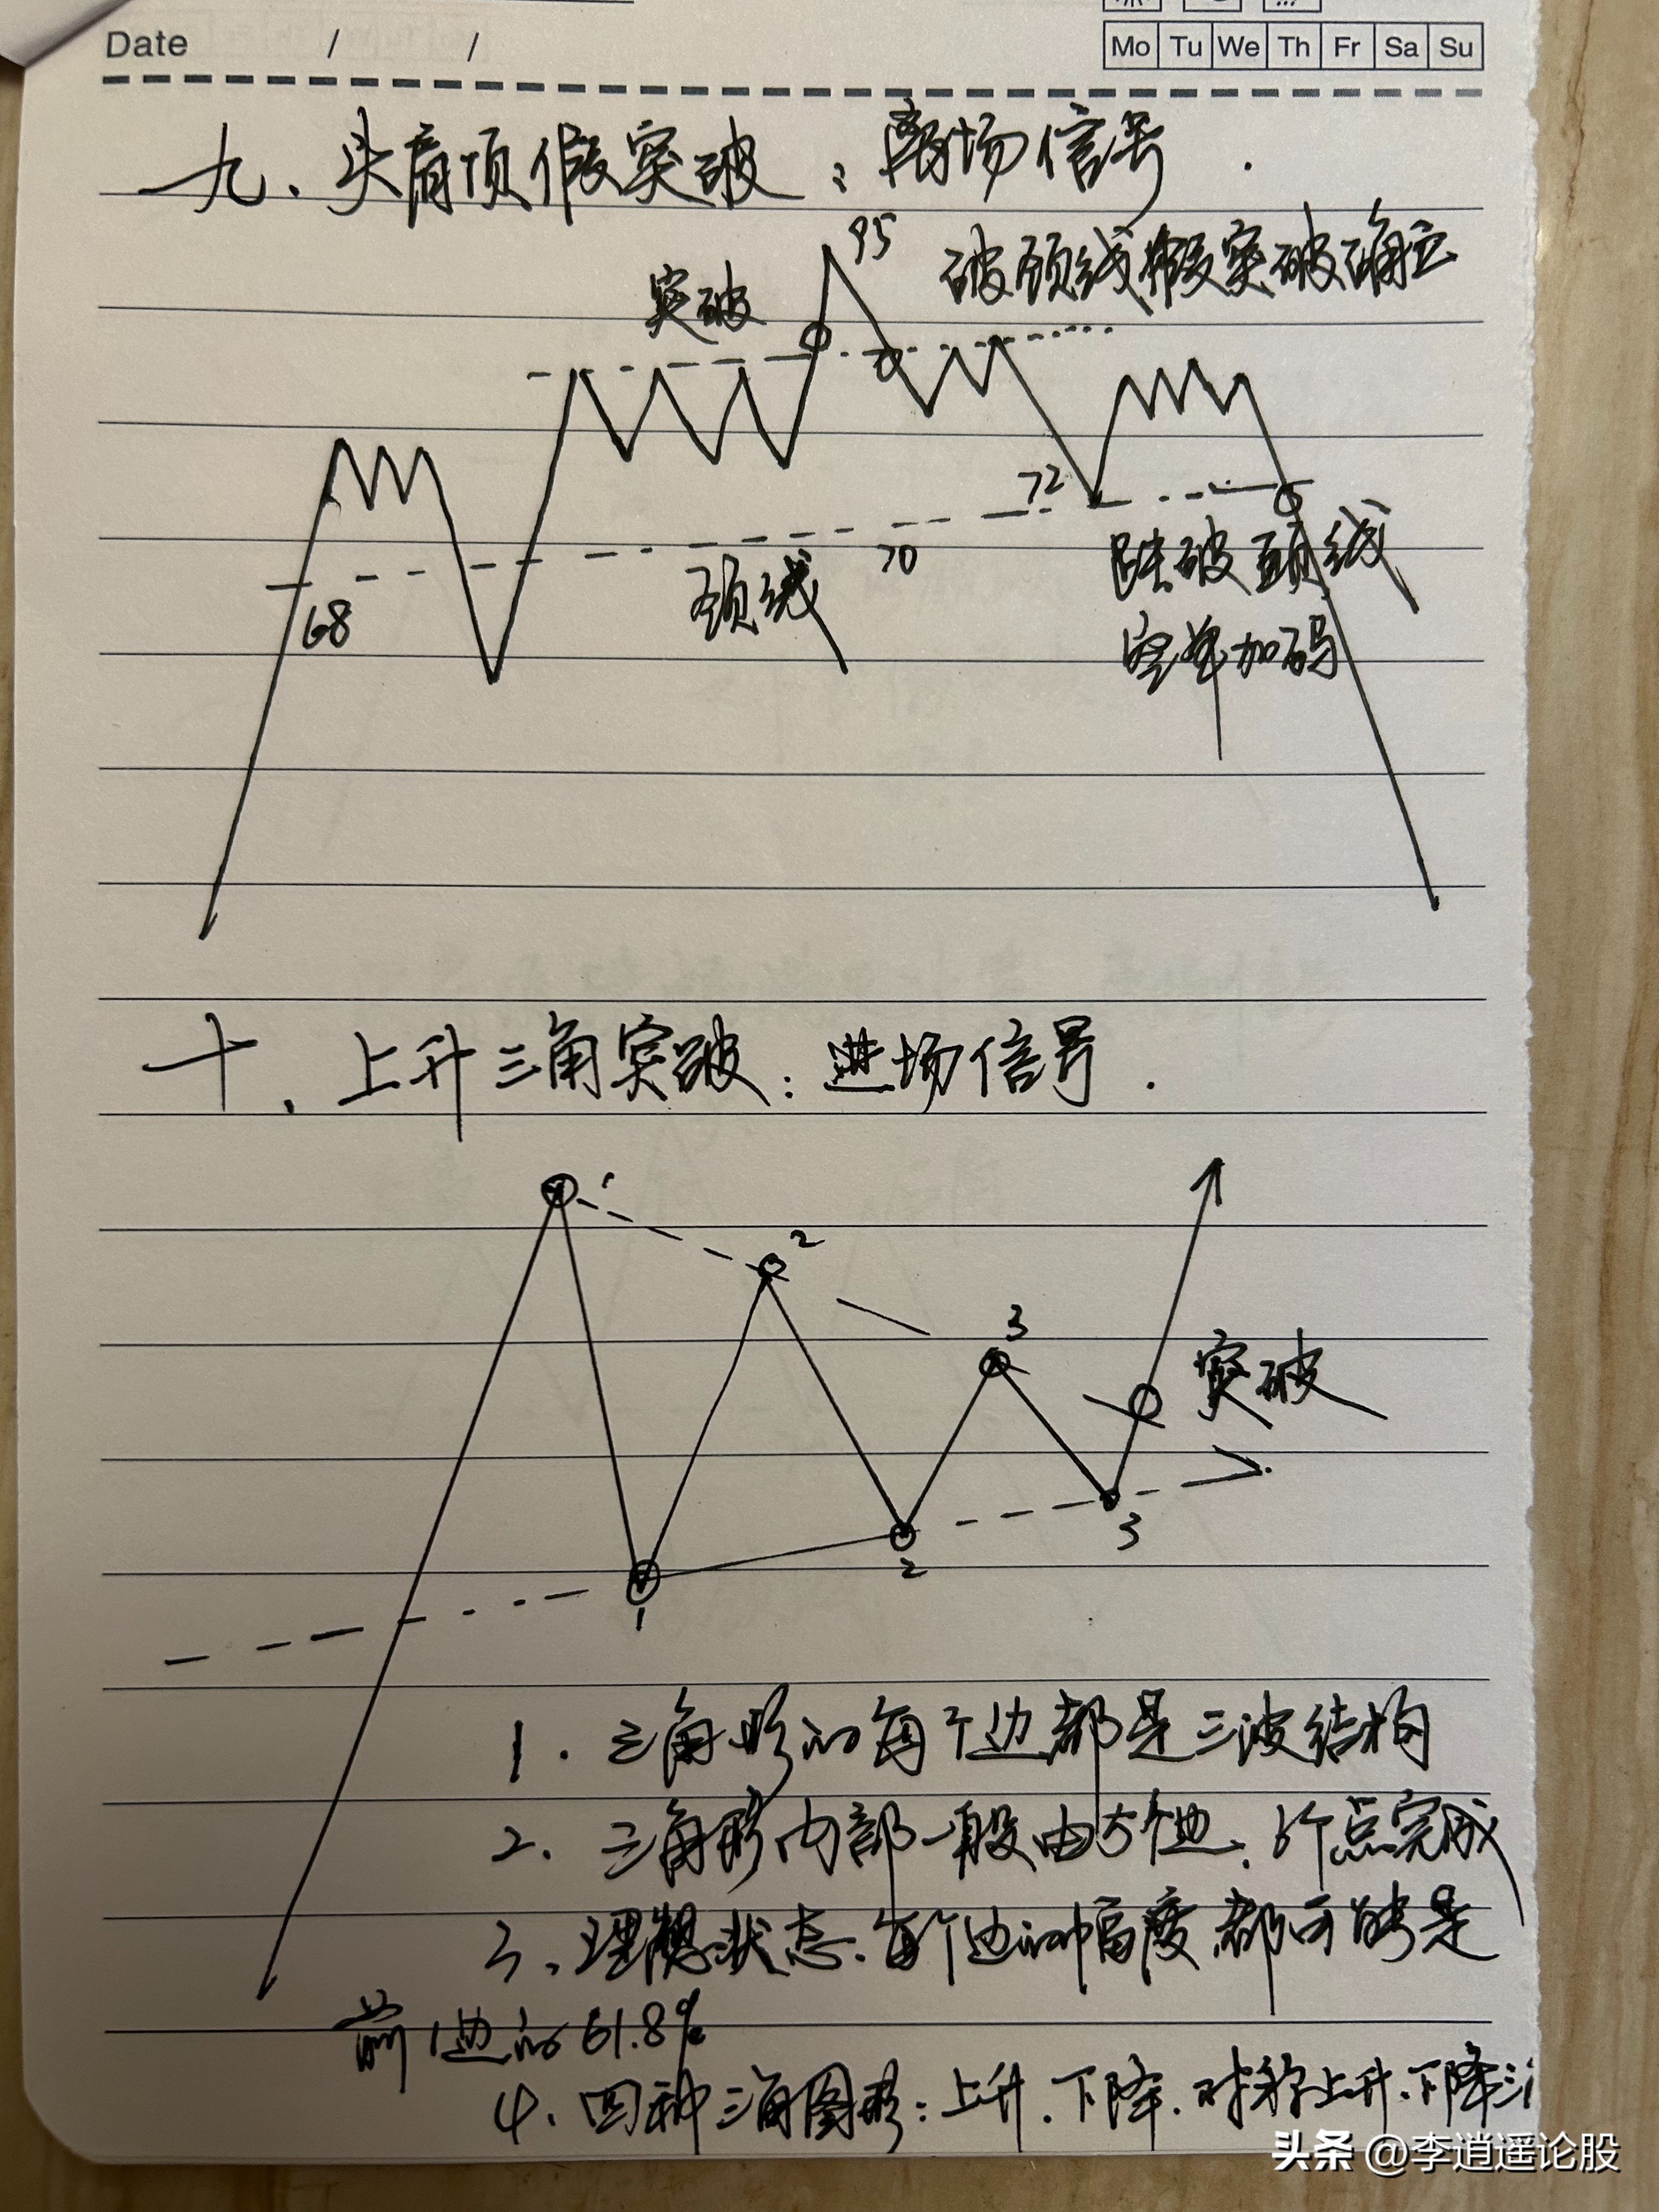 Date / /
Mo Tu We Th Fr Sa Su
九、头肩顶假突破：离场信号.
95
突破
破颈线假突破确立
72
70
颈线
68
跌破颈线
空单加码
十、上升三角突破：进场信号.
1
2
3
突破
3
2
1
1. 三角形的每个边都是三波结构
2. 三角形内部一般由5个边、6个点完成
3、理想状态、每个边的幅度都可能是
前1边的61.8%
4、四种三角图形：上升、下降、对称上升、下降三
头条 @李逍遥论股